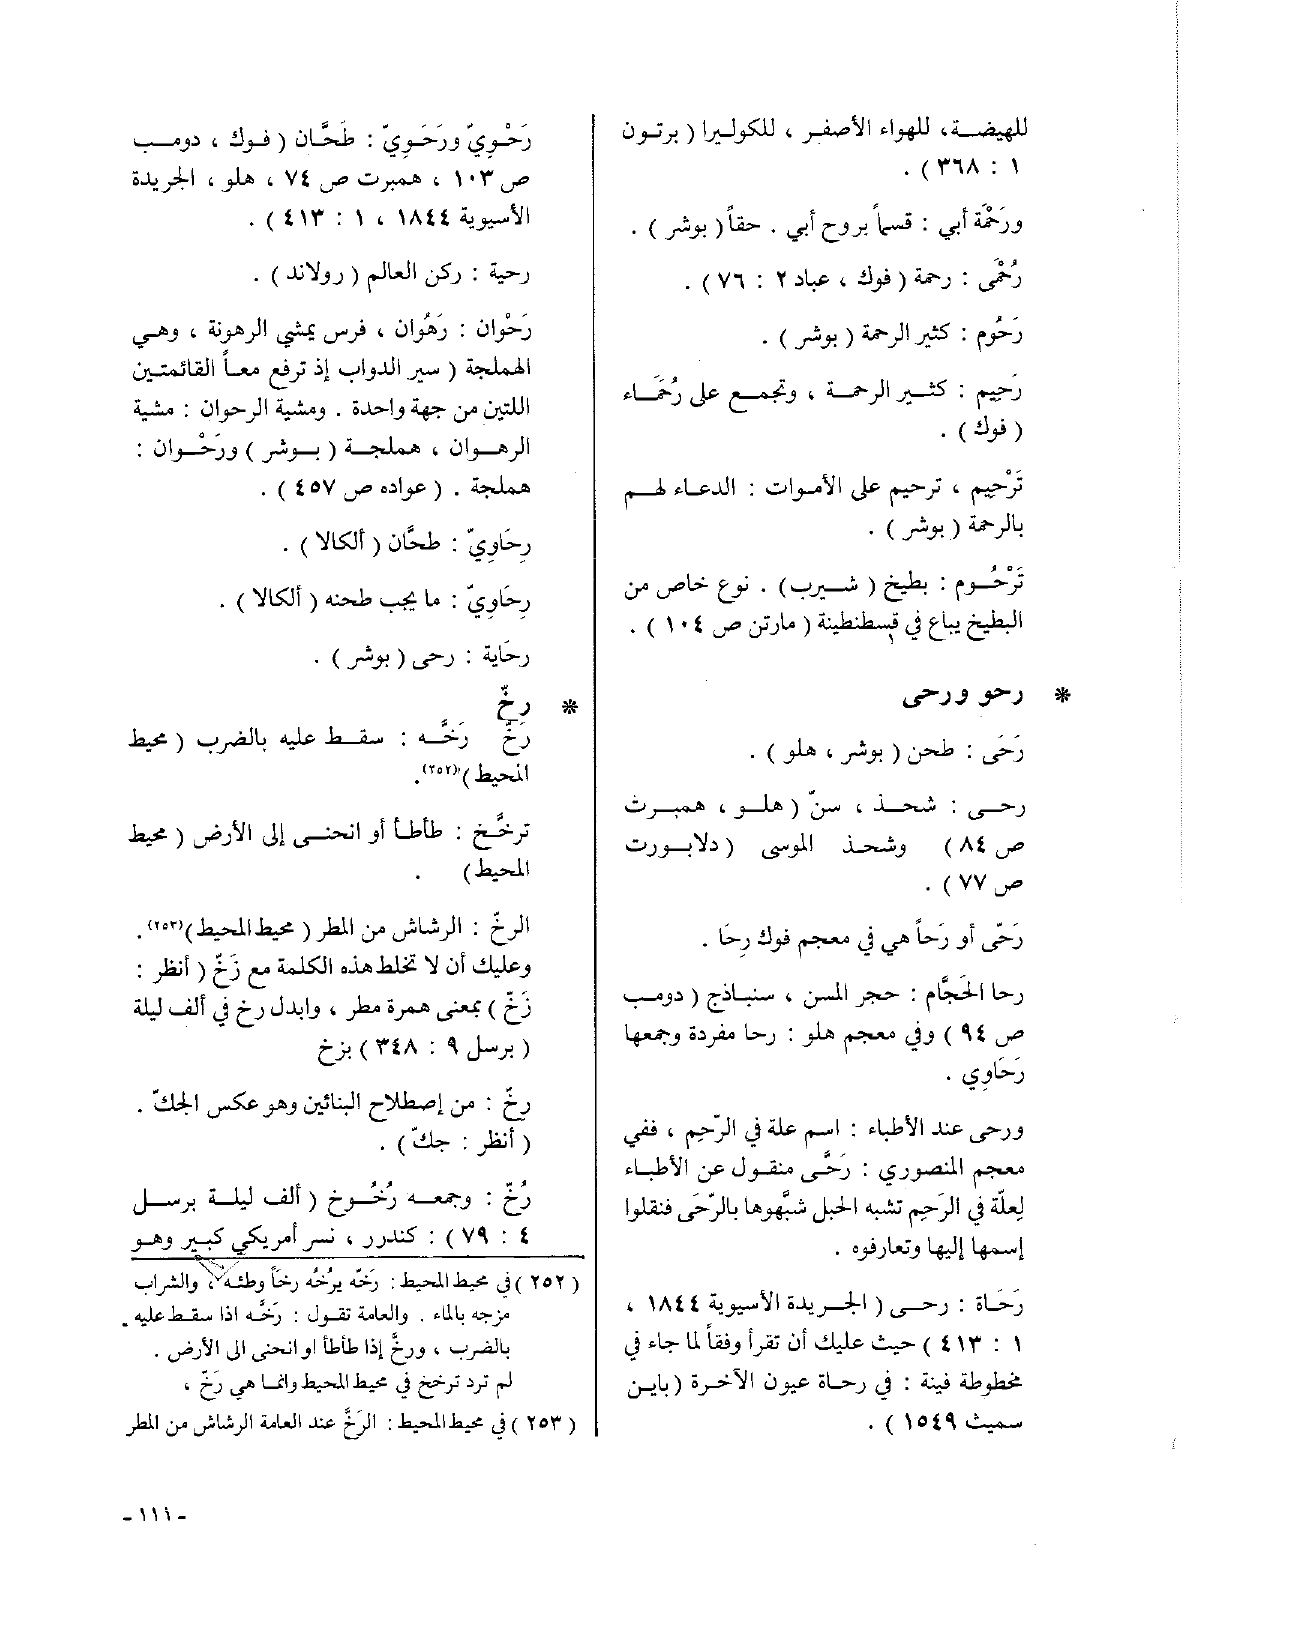 للهيضة، للهواء الأصفر ، للكوليرا ( برتون
١ : ٣٦٨ ) .
ورَحْمَة أبي : قسماً بروح أبي . حقاً ( بوشر ) .
رُحْمَى : رحمة ( فوك ، عباد ٢ : ٧٦ ) .
رَحُوم : كثير الرحمة ( بوشر ) .
رَحِيم : كثير الرحمة ، وتجمع على رُحَمَاء
( فوك ) .
تَرْحِيم ، ترحيم على الأموات : الدعاء لهم
بالرحمة ( بوشر ) .
تَرْحُوم : بطيخ ( شيرب ) . نوع خاص من
البطيخ يباع في قسطنطينة ( مارتن ص ١٠٤ ) .
* رحو ورحى
رَحَى : طحن ( بوشر ، هلو ) .
رحى : شحذ ، سنّ ( هلو ، همبرت
ص ٨٤ ) وشحذ الموسى ( دلابورت
ص ٧٧ ) .
رَحّى أو رَحاً هي في معجم فوك رِحَا .
رحا الحَجَّام : حجر المسن ، سنباذج ( دومب
ص ٩٤ ) وفي معجم هلو : رحا مفردة وجمعها
رَحَاوِي .
ورحى عند الأطباء : اسم علة في الرّحِم ، ففي
معجم المنصوري : رَحًى منقول عن الأطباء
لِعلّة في الرَحِم تشبه الحبل شبَّهوها بالرّحَى فنقلوا
إسمها إليها وتعارفوه .
رَحَاة : رحى ( الجريدة الأسيوية ١٨٤٤ ،
١ : ٤١٣ ) حيث عليك أن تقرأ وفقاً لما جاء في
مخطوطة فينة : في رحاة عيون الآخرة ( باين
سميث ١٥٤٩ ) .
رَحْوِيّ ورَحَوِيّ : طَحَّان ( فوك ، دومب
ص ١٠٣ ، همبرت ص ٧٤ ، هلو ، الجريدة
الأسيوية ١٨٤٤ ، ١ : ٤١٣ ) .
رحية : ركن العالم ( رولاند ) .
رَحْوان : رَهُوان ، فرس يمشي الرهونة ، وهي
الهملجة ( سير الدواب إذ ترفع معاً القائمتين
اللتين من جهة واحدة . ومشية الرحوان : مشية
الرهوان ، هملجة ( بوشر ) ورَحْوان :
هملجة . ( عواده ص ٤٥٧ ) .
رِحَاوِيّ : طحَّان ( ألكالا ) .
رِحَاوِيّ : ما يجب طحنه ( ألكالا ) .
رحَاية : رحى ( بوشر ) .
* رخّ
رَخَّ رَخَّه : سقط عليه بالضرب ( محيط
المحيط )(٢٥٢).
ترخَّخ : طأطأ أو انحنى إلى الأرض ( محيط
المحيط ) .
الرخّ : الرشاش من المطر ( محيط المحيط )(٢٥٣).
وعليك أن لا تخلط هذه الكلمة مع زَخّ ( أنظر :
زَخّ ) بمعنى همرة مطر ، وابدل رخ في ألف ليلة
( برسل ٩ : ٣٤٨ ) بزخ
رخّ : من إصطلاح البنائين وهو عكس الجكّ .
( أنظر : جكّ ) .
رُخّ : وجمعه رُخُوخ ( ألف ليلة برسل
٤ : ٧٩ ) : كندرر ، نسر أمريكي كبير وهو
( ٢٥٢ ) في محيط المحيط : رَخّه يرُخُّه رخاً وطئه ، والشراب
مزجه بالماء . والعامة تقول : رَخَّه اذا سقط عليه
بالضرب ، ورخَّ إذا طأطأ او انحنى الى الأرض .
لم ترد ترخخ في محيط المحيط وانما هي رَخّ ،
( ٢٥٣ ) في محيط المحيط : الرَخَّ عند العامة الرشاش من المطر
- ١١١ -